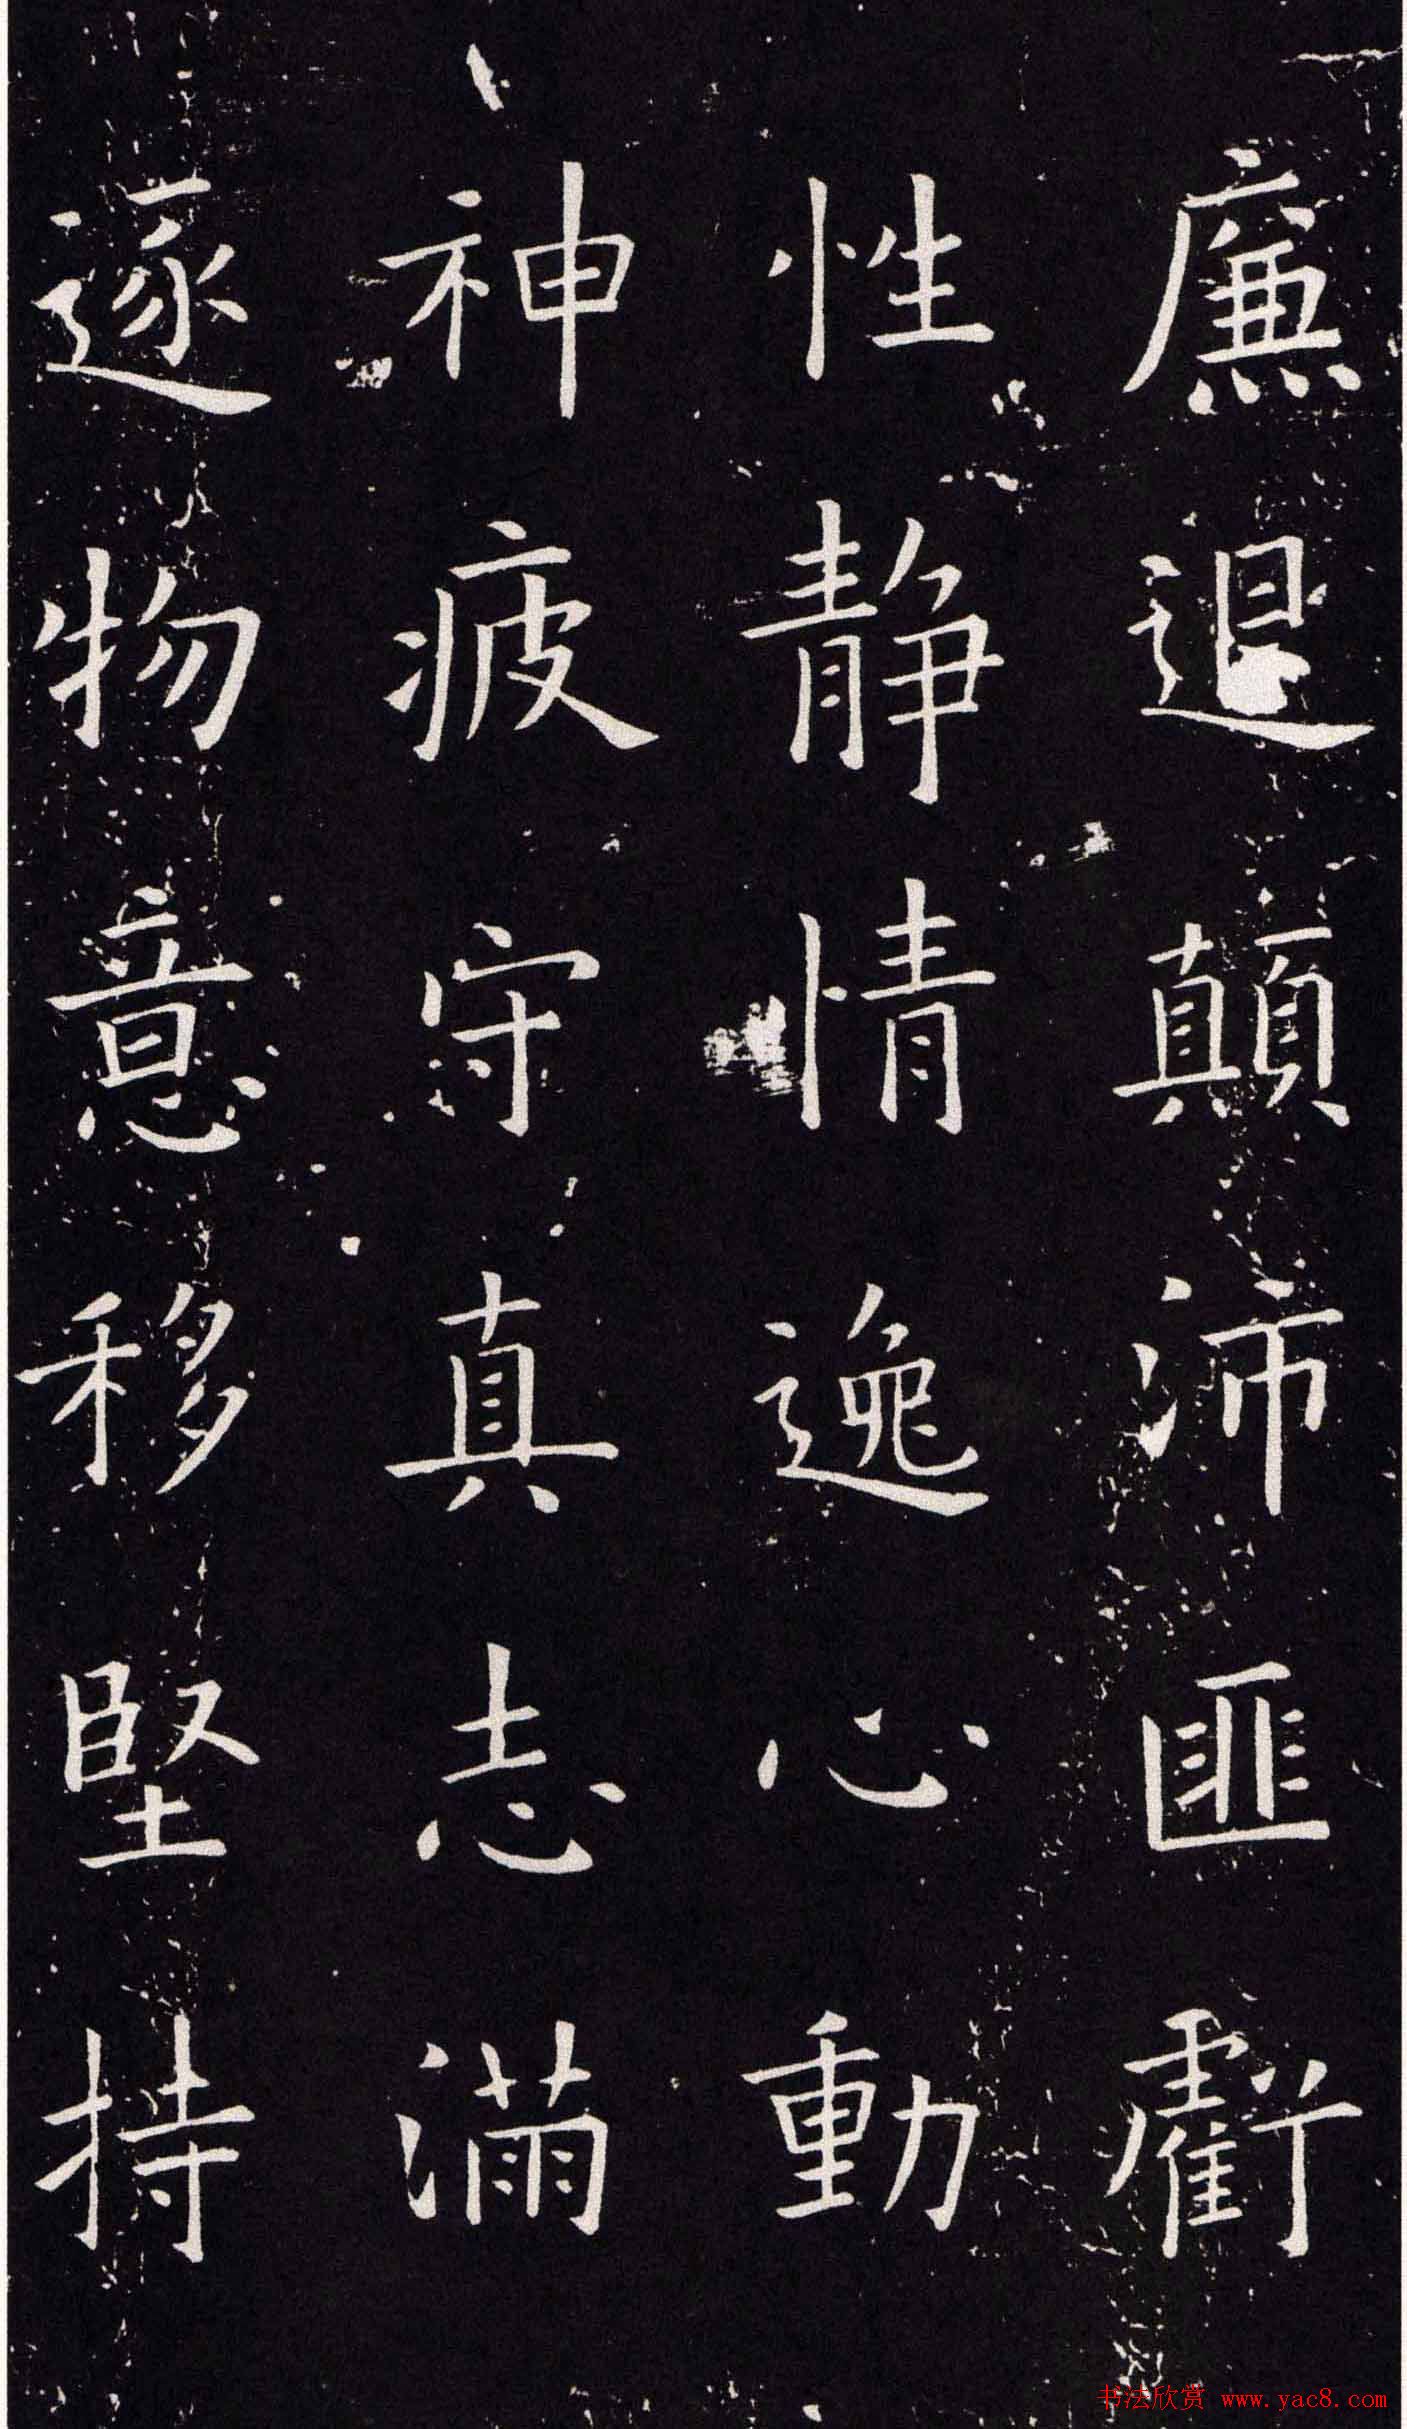 廉退顛沛匪虧
性靜情逸心動
神疲守真志滿
逐物意移堅持
书法欣赏 www.yac8.com